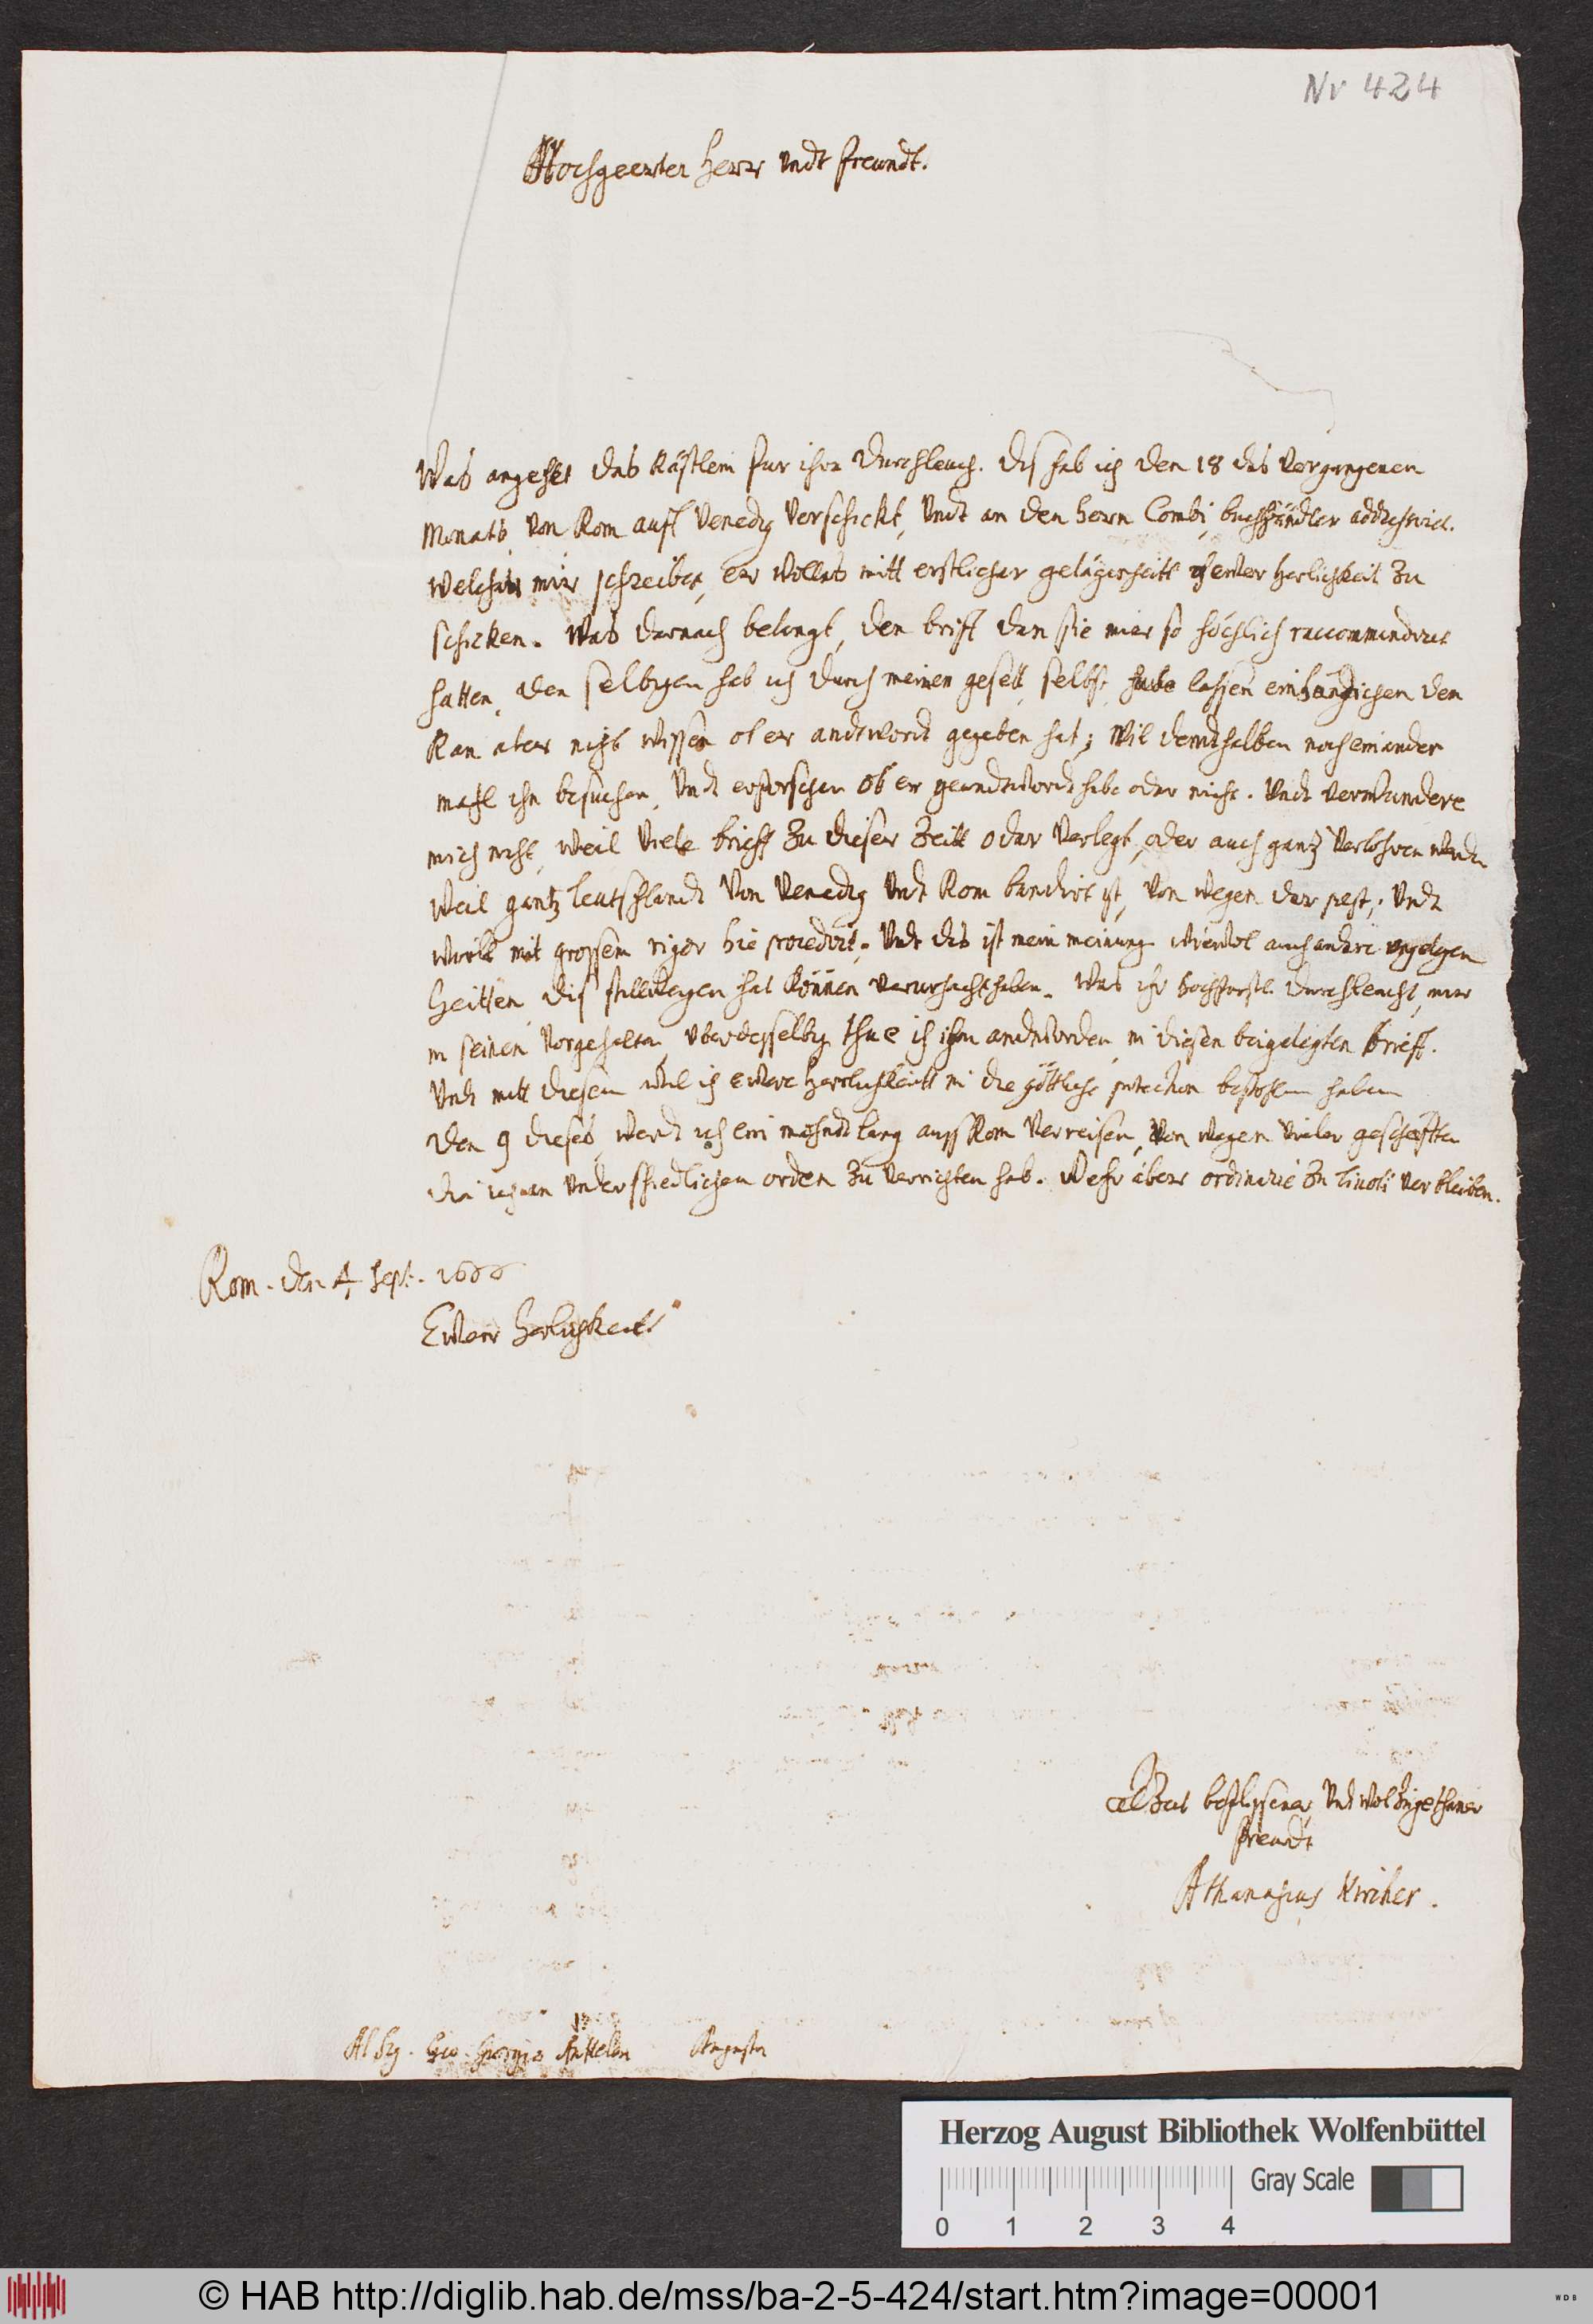 Nr 424
Hochgeerter Herr Undt freundt.
Was angehet das Kästlein fur ihre Durchleuch. dis hab ich den 18 des vergangenen
Monats, von Rom auff Venedig verschickt, Undt an den herrn Combi, buchhändler addressirt.
welcher mir schreibet, er wolles mitt erstlicher gelägenheitt Ewer herlichkeit zu
schicken. Was darnach belangt, den briff den sie mier so höchlich raccommendirt
hatten, den selbigen hab ich durch meinen gesell, selbst lassen einhändichen den
Kan aber nicht wissen ob er andtwordt gegeben hat; wil demdthalben noch ein ander
mahl ihn besuchen, Undt erforschen ob er geandtwordt habe oder nicht. Undt verwundere
mich nicht, weil viele brieff zu dieser Zeitt oder verlegt, oder auch gantz verlohren werden
weil gantz teutschlandt von Venedig Undt Rom bandirt ist, von wegen der pest; Undt
wirdt mit grossem rigor hie procedirt. Undt das ist mein meinung wiewol auch andere ungelegen
heitten dis stillschweigen hat können verursacht haben. Was ihr hochfurstl. Durchleucht, mir
in seinen vorgehalten, uberdasselbig thue ich ihm andtworden in diesen beigelegten brieff.
Undt mitt diesem wil ich Ewere herrlichkeitt in die göttliche protection befohlen haben
den 9 dieses, werdt ich ein mohndt lang auss Rom verreisen, von wegen vieler geschefften
die ich an underschiedlichen orden zu verrichten hab. Wehr aber ordinarie zu Tivoli verbleiben.
Rom. den 4 Sept. 1666
Ewerer herlichkeit
alZeit beflissener, Undt wol Zugethaner
freundt
Athanasius Kircher.
Al Sig. Gio. Giorgio Anckelen Augusta
Herzog August Bibliothek Wolfenbüttel
Gray Scale
0 1 2 3 4
© HAB http://diglib.hab.de/mss/ba-2-5-424/start.htm?image=00001
WDB